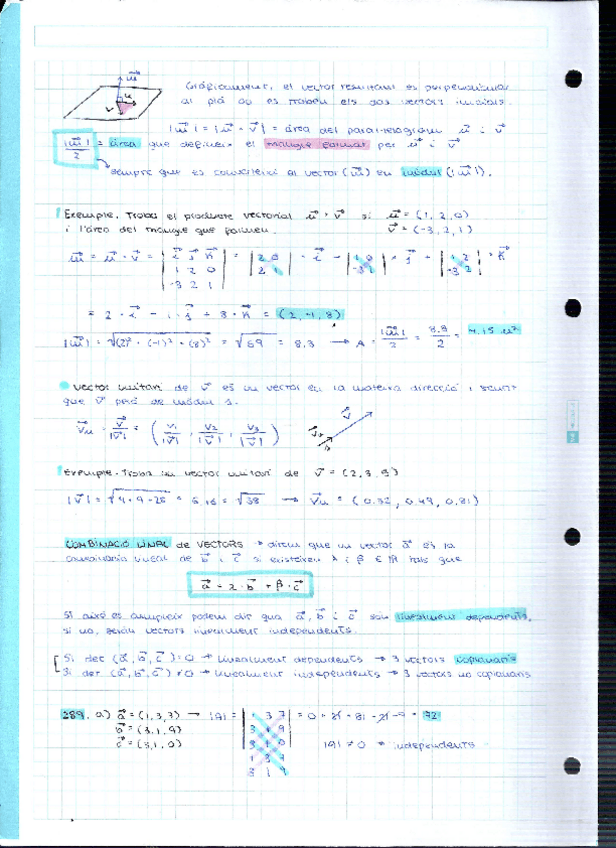 Gràficament, el vector resultant es perpendicular
al pla on es troben els dos vectors inicials.
|w⃗| = |u⃗ · v⃗| = àrea del paral·lelogram u⃗ i v⃗
|w⃗|/2 = àrea que defineix el triangle format per u⃗ i v⃗
sempre que es converteixi el vector (w⃗) en mòdul (|w⃗|).
Exemple. Troba el producte vectorial u⃗ · v⃗ si u⃗ = (1, 2, 0)
i l'àrea del triangle que formen. v⃗ = (-3, 2, 1)
w⃗ = u⃗ · v⃗ = | i⃗ j⃗ k⃗ | 1 2 0 | -3 2 1 | = | 2 0 | 2 1 | · i⃗ - | 1 0 | -3 1 | · j⃗ + | 1 2 | -3 2 | · k⃗
= 2 · i⃗ - 1 · j⃗ + 8 · k⃗ = (2, -1, 8)
|w⃗| = √(2)² + (-1)² + (8)² = √69 = 8,3 → A = |w⃗|/2 = 8,3/2 = 4,15 u²
Vector unitari de v⃗ és un vector en la mateixa direcció i sentit
que v⃗ però de mòdul 1.
v⃗u = v⃗/|v⃗| = (v1/|v⃗|, v2/|v⃗|, v3/|v⃗|)
Exemple. Troba un vector unitari de v⃗ = (2, 3, 5)
|v⃗| = √4+9+25 = 6,16 = √38 → v⃗u = (0.32, 0.49, 0.81)
COMBINACIÓ LINEAL de VECTORS → direm que un vector a⃗ és la
combinació lineal de b⃗ i c⃗ si existeixen λ i β ∈ ℝ tals que
a⃗ = λ · b⃗ + β · c⃗
Si això es compleix podem dir que a⃗, b⃗ i c⃗ són linealment dependents,
si no, seran vectors linealment independents.
Si det (a⃗, b⃗, c⃗) = 0 → linealment dependents → 3 vectors coplanaris
Si det (a⃗, b⃗, c⃗) ≠ 0 → linealment independents → 3 vectors no coplanaris
289. a) a⃗ = (1, 3, 7) → |A| =
b⃗ = (3, 1, 9)
c⃗ = (3, 1, 0)
|A| ≠ 0 → independents